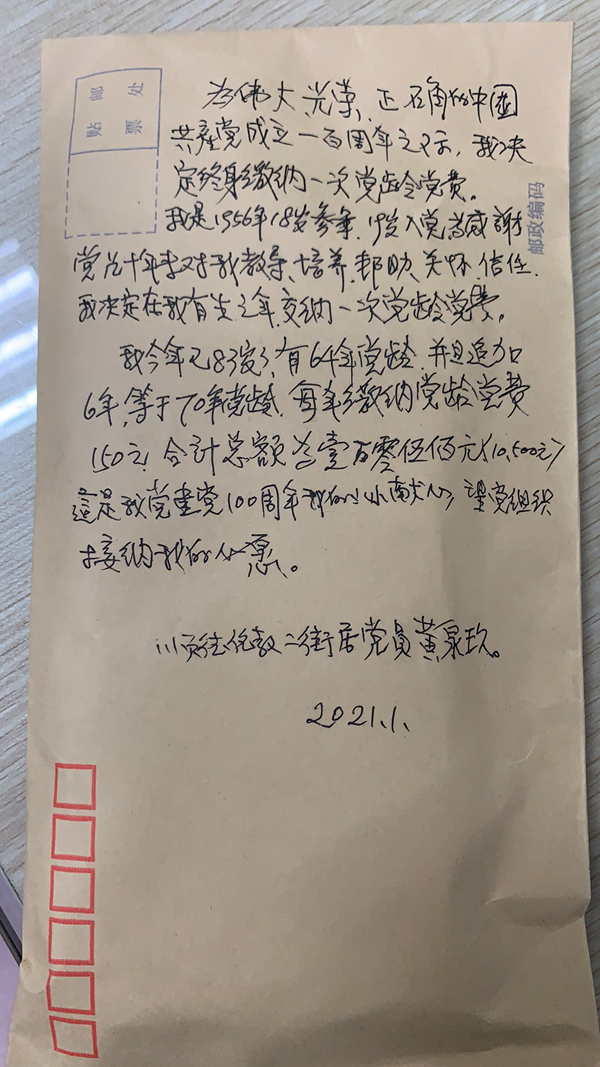 贴邮
票处
邮政编码
为伟大、光荣、正确的中国
共產党成立一百周年之际，我决
定终身缴纳一次党龄党费。
我是1956年18岁参军，19岁入党，为感謝
党几十年来对我教导、培养、帮助、关怀、信任，
我决定在我有生之年，交纳一次党龄党费。
我今年已83岁，有64年党龄，并且追加
6年，等于70年党龄，每年缴纳党龄党费
150元，合计总额为壹万零伍佰元（10,500元）
這是我党建党100周年我的小小献心，望党组织
接纳我的心愿。
二街居党员黄泉玖。
2021.1.